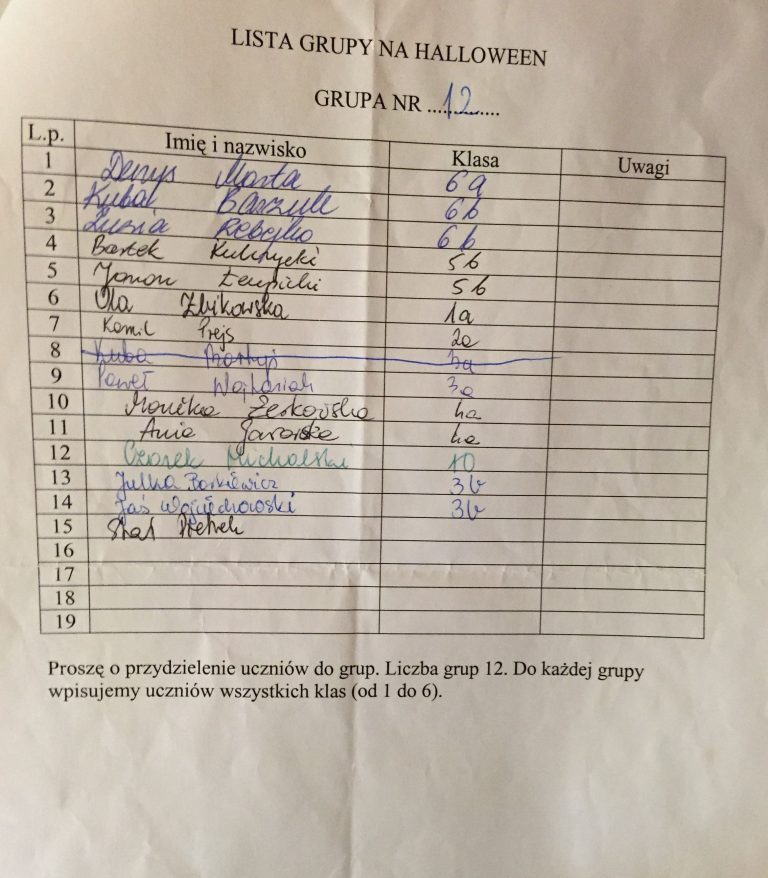 LISTA GRUPY NA HALLOWEEN
GRUPA NR ....12.....
L.p. Imię i nazwisko Klasa Uwagi
1 Denys Marta 6a
2 Kubat 6b
3 Luśnia Rebejko 6b
4 Bartek Kulczycki 5b
5 5b
6 Ola Żbikowska 1a
7 Kamil Prejs 2a
8 Kuba 3a
9 Paweł 3a
10 Monika Żerkowska 4a
11 Ania 4a
12 Czarek Michalski 1c
13 Julka 3b
14 Jaś Wojciechowski 3b
15 Staś
16
17
18
19
Proszę o przydzielenie uczniów do grup. Liczba grup 12. Do każdej grupy
wpisujemy uczniów wszystkich klas (od 1 do 6).